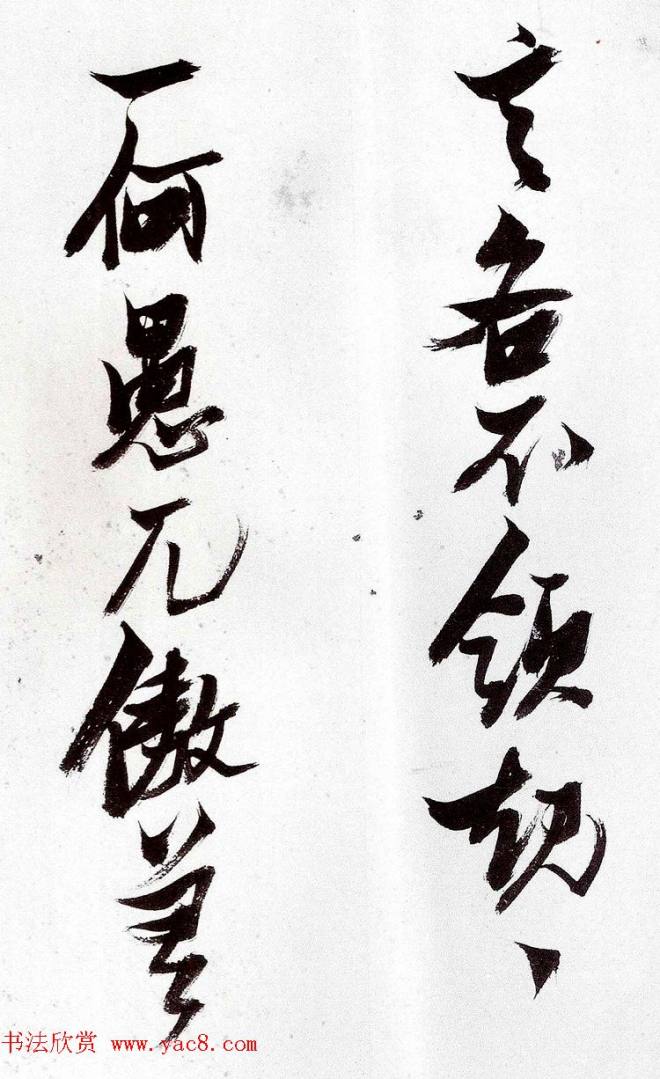 言各不領規、
一何愚兀傲差
书法欣赏 www.yac8.com